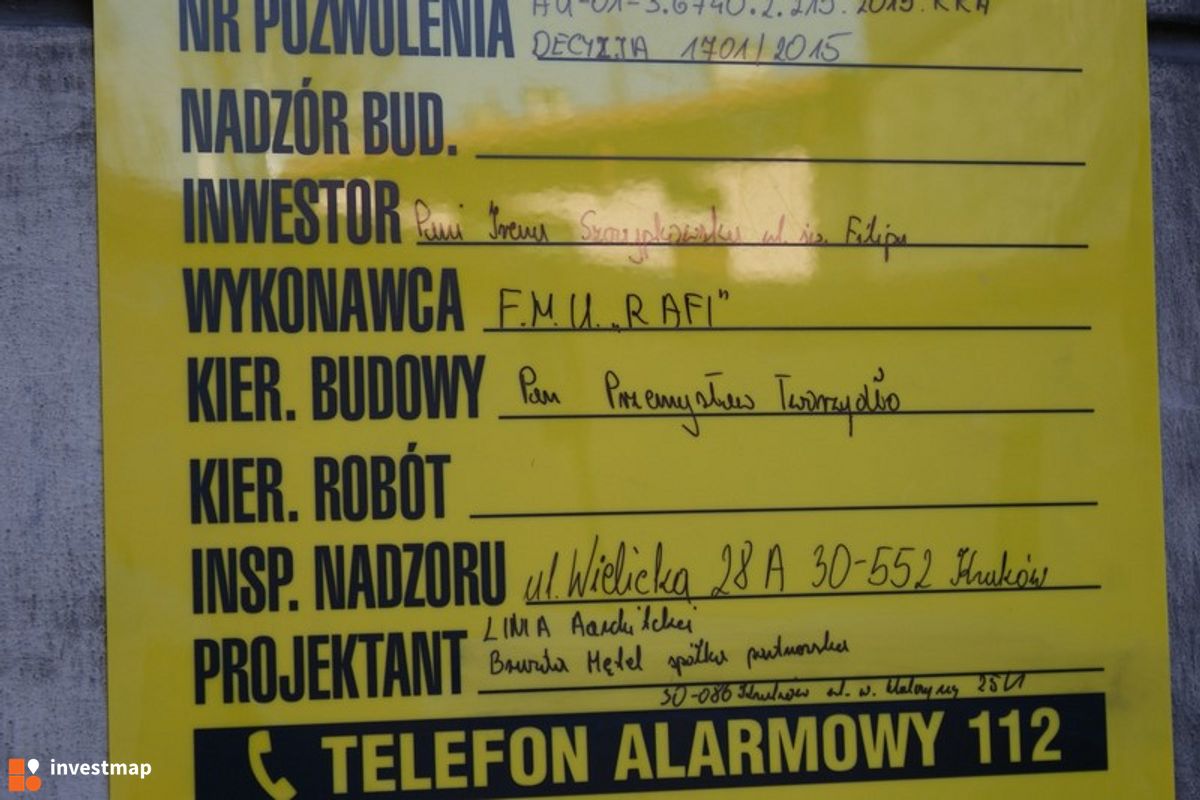 NR POZWOLENIA AU-01-3.6740.2.215.2015.KKA
DECYZJA 1701/2015
NADZÓR BUD.
INWESTOR Pani Irena ul. św. Filipa
WYKONAWCA F.M.U. „RAFI”
KIER. BUDOWY Pan Przemysław Tworzydło
KIER. ROBÓT
INSP. NADZORU ul. Wielicka 28A 30-552 Kraków
LINIA
PROJEKTANT spółka partnerska
30-086 Kraków ul. 25/1
TELEFON ALARMOWY 112
investmap